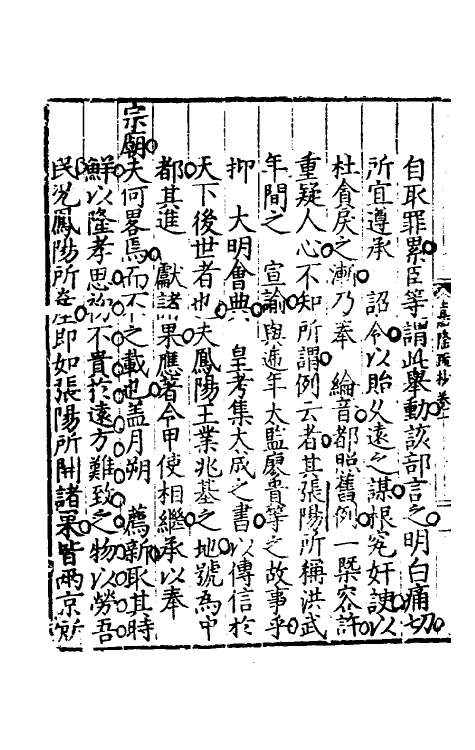 自取罪累臣等謂此舉動該部言之明白痛切
所宜遵承　詔令以貽久遠之謀根究奸諛以
杜貪戾之漸乃奉　綸音都照舊例一槩容許
重疑人心不知所謂例云者其張陽所稱洪武
年間之　宣諭與逓年太監廖賫等之故事乎
抑　大明會典　皇考集大成之書以傳信於
天下後世者也夫鳳陽王業兆基之地號為中
都其進　獻諸果應著令甲使相繼承以奉
宗廟夫何畧焉而不之載也盖月朔　薦新取其時
鮮以隆孝思初不貴於遠方難致之物以勞吾
民况鳳陽所産即如張陽所開諸果皆兩京所